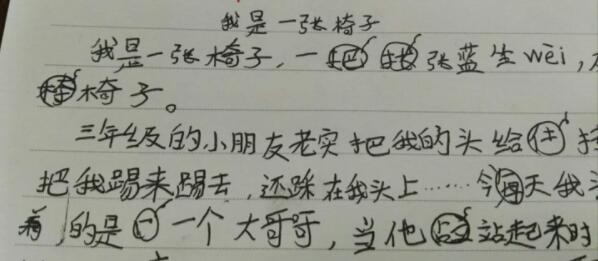 我是一张椅子
我是一张椅子，一把 张蓝生wēi，
椅子。
三年级的小朋友老实把我的头给
把我踢来踢去，还踩在我头上……今每天我
的是 一个大哥哥，当他 站起来时